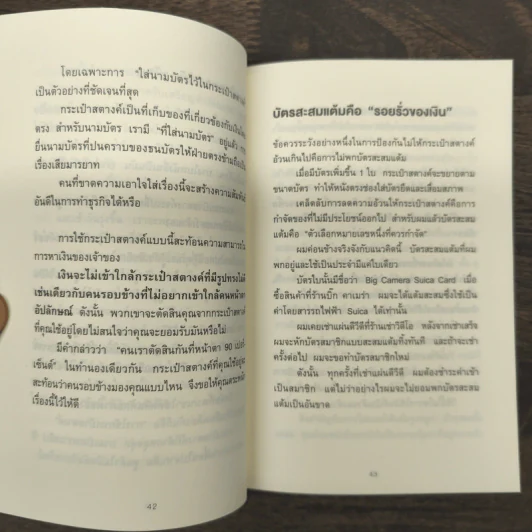 โดยเฉพาะการ "ใส่นามบัตรไว้ในกระเป๋าสตางค์
เป็นตัวอย่างที่ชัดเจนที่สุด
กระเป๋าสตางค์เป็นที่เก็บของที่เกี่ยวข้องกับเงินโดย
ตรง สำหรับนามบัตร เรามี "ที่ใส่นามบัตร" อยู่แล้ว
ยื่นนามบัตรที่ปนคราบของธนบัตรให้ฝ่ายตรงข้ามถือเป็น
เรื่องเสียมารยาท
คนที่ขาดความเอาใจใส่เรื่องนี้จะสร้างความสัมพันธ์
อันดีในการทำธุรกิจได้หรือ
การใช้กระเป๋าสตางค์แบบนี้สะท้อนความสามารถใน
การหาเงินของเจ้าของ
เงินจะไม่เข้าใกล้กระเป๋าสตางค์ที่มีรูปทรงไม่ดี
เช่นเดียวกับคนรอบข้างที่ไม่อยากเข้าใกล้คนหน้าตา
อัปลักษณ์ ดังนั้น พวกเขาจะตัดสินคุณจากกระเป๋าสตางค์
ที่คุณใช้อยู่โดยไม่สนใจว่าคุณจะยอมรับมันหรือไม่
มีคำกล่าวว่า "คนเราตัดสินกันที่หน้าตา 90 เปอร์
เซ็นต์" ในทำนองเดียวกัน กระเป๋าสตางค์ที่คุณใช้อยู่
สะท้อนว่าคนรอบข้างมองคุณแบบไหน จึงขอให้คุณตระหนัก
เรื่องนี้ไว้ให้ดี
42
บัตรสะสมแต้มคือ "รอยรั่วของเงิน"
ข้อควรระวังอย่างหนึ่งในการป้องกันไม่ให้กระเป๋าสตางค์
อ้วนเกินไปคือการไม่พกบัตรสะสมแต้ม
เมื่อมีบัตรเพิ่มขึ้น 1 ใบ กระเป๋าสตางค์จะขยายตาม
ขนาดบัตร ทำให้หนังตรงช่องใส่บัตรยืดและเสื่อมสภาพ
เคล็ดลับการลดความอ้วนให้กระเป๋าสตางค์คือการ
กำจัดของที่ไม่มีประโยชน์ออกไป สำหรับผมแล้วบัตรสะสม
แต้มคือ "ตัวเลือกหมายเลขหนึ่งที่ควรกำจัด"
ผมค่อนข้างจริงจังกับแนวคิดนี้ บัตรสะสมแต้มที่ผม
พกอยู่และใช้เป็นประจำมีแค่ใบเดียว
บัตรใบนั้นมีชื่อว่า Big Camera Suica Card เมื่อ
ซื้อสินค้าที่ร้านบิ๊ก คาเมร่า ผมจะได้แต้มสะสมซึ่งใช้เป็น
ค่าโดยสารรถไฟฟ้า Suica ได้เท่านั้น
ผมเคยเช่าแผ่นดีวีดีที่ร้านเช่าวิดีโอ หลังจากเช่าเสร็จ
ผมจะหักบัตรสมาชิกแบบสะสมแต้มทิ้งทันที และถ้าจะเช่า
ครั้งต่อไป ผมจะขอทำบัตรสมาชิกใหม่
ดังนั้น ทุกครั้งที่เช่าแผ่นดีวีดี ผมต้องชำระค่าเข้า
เป็นสมาชิก แต่ไม่ว่าอย่างไรผมจะไม่ยอมพกบัตรสะสม
แต้มเป็นอันขาด
43